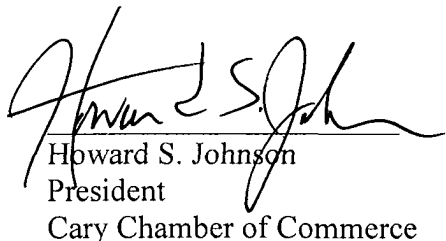 Howard S. Johnson
Howard S. Johnson
President
Cary Chamber of Commerce